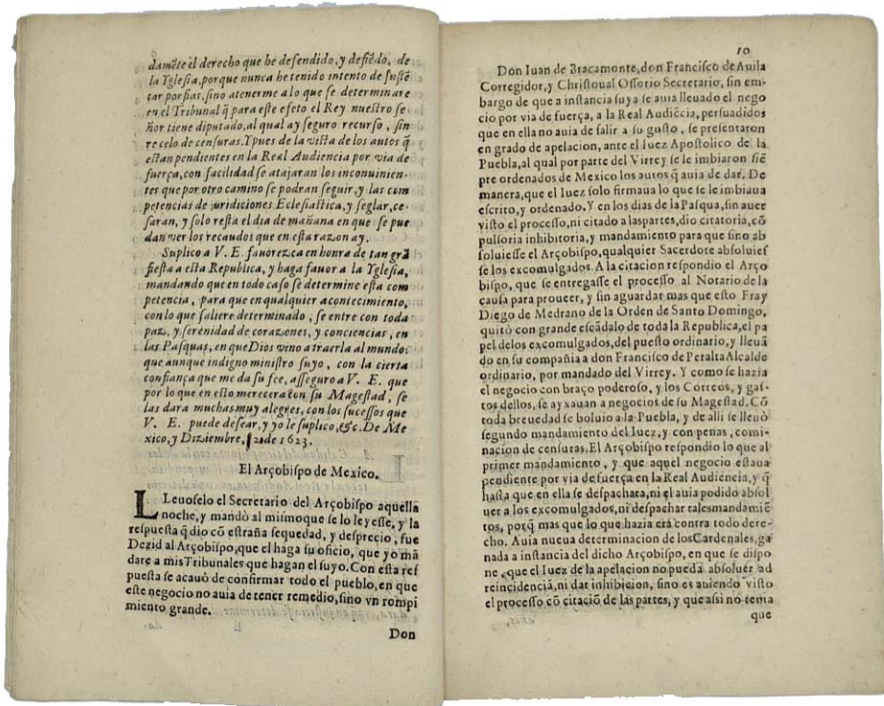 damẽte el derecho que he defendido, y defiẽdo, de
la Yglesia, porque nunca he tenido intento de sustẽ
tar porfias, sino atenerme a lo que se determinare
en el Tribunal q̃ para este efeto el Rey nuestro se
ñor tiene diputado, al qual ay seguro recurso, sin
recelo de censuras. Y pues de la vista de los autos q̃
estan pendientes en la Real Audiencia por via de
fuerça, con facilidad se atajaran los inconuinien-
tes que por otro camino se podran seguir, y las com
petencias de juridiciones Eclesiastica, y seglar, ce-
saran, y solo resta el dia de mañana en que se pue
dan ver los recaudos que en esta razon ay.
Suplico a V. E. fauorezca en honra de tan grã
fiesta a esta Republica, y haga fauor a la Yglesia,
mandando que en todo caso se determine esta com
petencia, para que en qualquier acontecimiento,
con lo que saliere determinado, se entre con toda
paz, y serenidad de corazones, y conciencias, en
las Pasquas, en que Dios vino a traerla al mundo:
que aunque indigno ministro suyo, con la cierta
confiança que me da su fee, asseguro a V. E. que
por lo que en esto merecera con su Magestad, se
las dara muchas muy alegres, con los sucessos que
V. E. puede desear, y yo le suplico, &c. De Me
xico, y Diziembre, 21 de 1623.
El Arçobispo de Mexico.
LLeuoselo el Secretario del Arçobispo aquella
noche, y mandò al mismo que se lo leyesse, y la
respuesta q̃ dio cõ estraña sequedad, y desprecio, fue
Dezid al Arçobispo, que el haga su oficio, que yo mã
dare a mis Tribunales que hagan el suyo. Con esta res
puesta se acauò de confirmar todo el pueblo, en que
este negocio no auia de tener remedio, sino vn rompi
miento grande.
Don
10
Don Iuan de Bracamonte, don Francisco de Auila
Corregidor, y Christoual Ossorio Secretario, sin em-
bargo de que a instancia suya se auia lleuado el nego
cio por via de fuerça, a la Real Audiẽcia, persuadidos
que en ella no auia de salir a su gusto, se presentaron
en grado de apelacion, ante el Iuez Apostolico de la
Puebla, al qual por parte del Virrey se le imbiaron siẽ
pre ordenados de Mexico los autos q̃ auia de dar. De
manera, que el Iuez solo firmaua lo que se le imbiaua
escrito, y ordenado. Y en los dias de la Pasqua, sin auer
visto el processo, ni citado a las partes, dio citatoria, cõ
pulsoria inhibitoria, y mandamiento para que sino ab
soluiesse el Arçobispo, qualquier Sacerdote absoluies
se los excomulgados. A la citacion respondio el Arço
bispo, que se entregasse el processo al Notario de la
causa para proueer, y sin aguardar mas que esto Fray
Diego de Medrano de la Orden de Santo Domingo,
quitò con grande escãdalo de toda la Republica, el pa
pel de los excomulgados, del puesto ordinario, y lleuã
do en su compañia a don Francisco de Peralta Alcalde
ordinario, por mandado del Virrey. Y como se hazia
el negocio con braço poderoso, y los Correos, y gas-
tos dellos, se ayxauan a negocios de su Magestad. Cõ
toda breuedad se boluio a la Puebla, y de alli se lleuò
segundo mandamiento del Iuez, y con penas, comi-
nacion de censuras. El Arçobispo respondio lo que al
primer mandamiento, y que aquel negocio estaua
pendiente por via de fuerça en la Real Audiencia, y q̃
hasta que en ella se despachara, ni el auia podido absol
uer a los excomulgados, ni despachar tales mandamiẽ
tos, porq̃ mas que lo que hazia era contra todo dere-
cho. Auia nueua determinacion de los Cardenales, ga
nada a instancia del dicho Arçobispo, en que se dispo
ne, que el Iuez de la apelacion no pueda absoluer ad
reincidenciã, ni dar inhibicion, sino es auiendo visto
el processo cõ citaciõ de las partes, y que assi no tenia
que